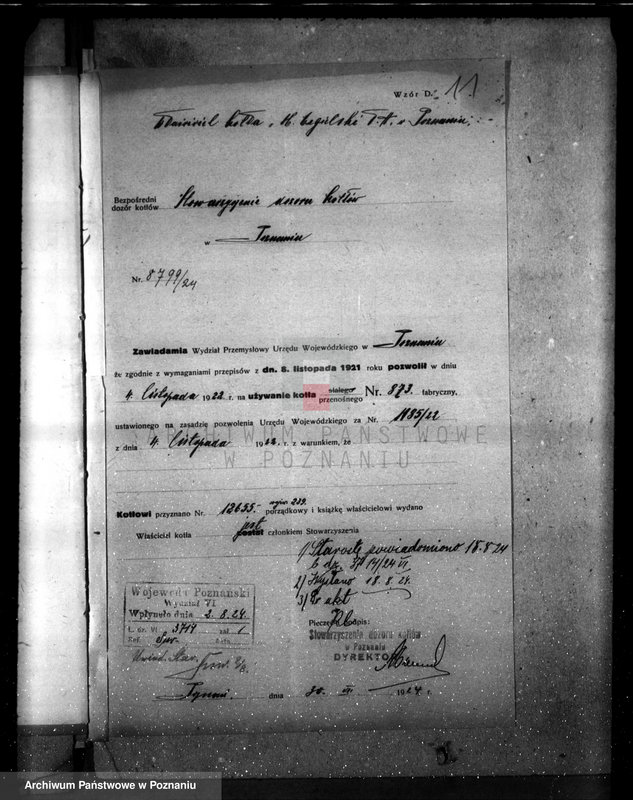 Wzór D. 11
Właściciel kotła, H. Cegielski T. A. w Poznaniu,
Bezpośredni
dozór kotłów Stowarzyszenie dozoru kotłów
w Poznaniu
Nr. 8799/24
Zawiadamia Wydział Przemysłowy Urzędu Wojewódzkiego w Poznaniu
że zgodnie z wymaganiami przepisów z dn. 8. listopada 1921 roku pozwolił w dniu
4. listopada 1922 r. na używanie kotła stałego przenośnego Nr. 873 fabryczny,
ustawionego na zasadzie pozwolenia Urzędu Wojewódzkiego za Nr. 1185/22
z dnia 4. listopada 1922 r. z warunkiem, że
ARCHIWUM PAŃSTWOWE
W POZNANIU
Kotłowi przyznano Nr. 12655.- 239. porządkowy i książkę właścicielowi wydano
Właściciel kotła jest został członkiem Stowarzyszenia
1) Starostę powiadomiono 18.8.24
2) 18.8.24.
3) akt
Wojewoda Poznański
Wydział VI
Wpłynęło dnia 2.8.24.
L. dz. VI 3714 zał. 1
Ref.
Pieczęć i podpis:
Stowarzyszenie dozoru kotłów
w Poznaniu
DYREKTOR
dnia 30. VII 1924 r.
Archiwum Państwowe w Poznaniu